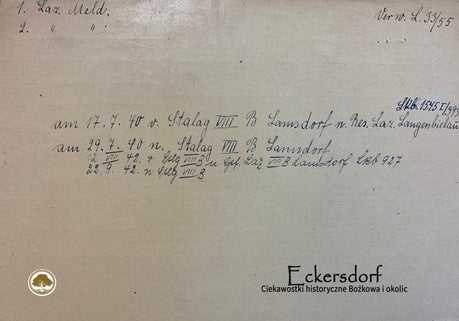 1. Laz Meld.
2. " "
Verw. L. 33/55
Stb. 1545 E/393
am 17. 7. 40 v. Stalag VIII B Lamsdorf n. Res. Laz. Langenbielau
am 29. 7. 40 n. Stalag VIII B Lamsdorf
12. VIII 42. v Stlg VIII B n Gef. Laz VIII B Lamsdorf Lkb 927
22. 9. 42. n Stlg VIII B
Eckersdorf
Ciekawostki historyczne Bożkowa i okolic